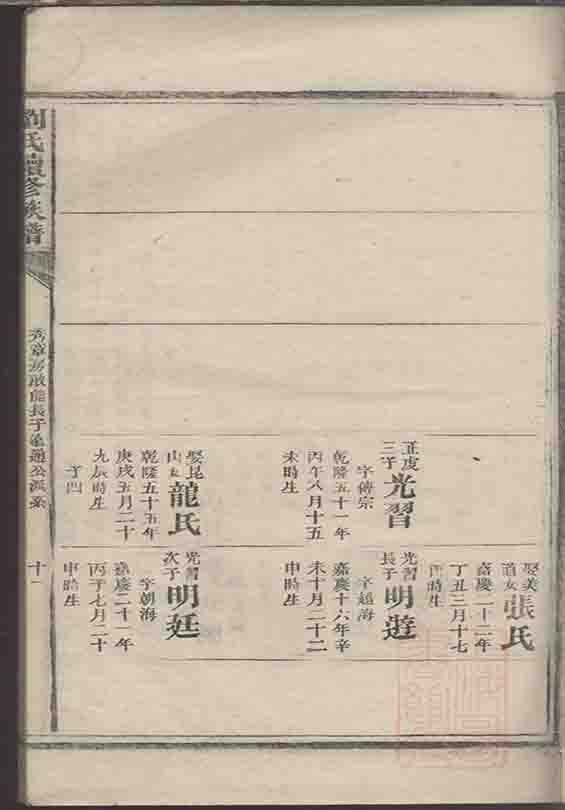 正虔
三子
光習
字傳宗
乾隆五十一年
丙午八月十五
未時生
娶昆
山女
龍氏
乾隆五十五年
庚戌五月二十
九辰時生
子四
娶美
道女
張氏
嘉慶二十二年
丁丑三月十七
酉時生
光習
長子
明遊
字超海
嘉慶十六年辛
未十月二十二
申時生
光習
次子
明廷
字朝海
嘉慶二十一年
丙子七月二十
申時生
劉氏續修族譜
長子
通公派系
十一